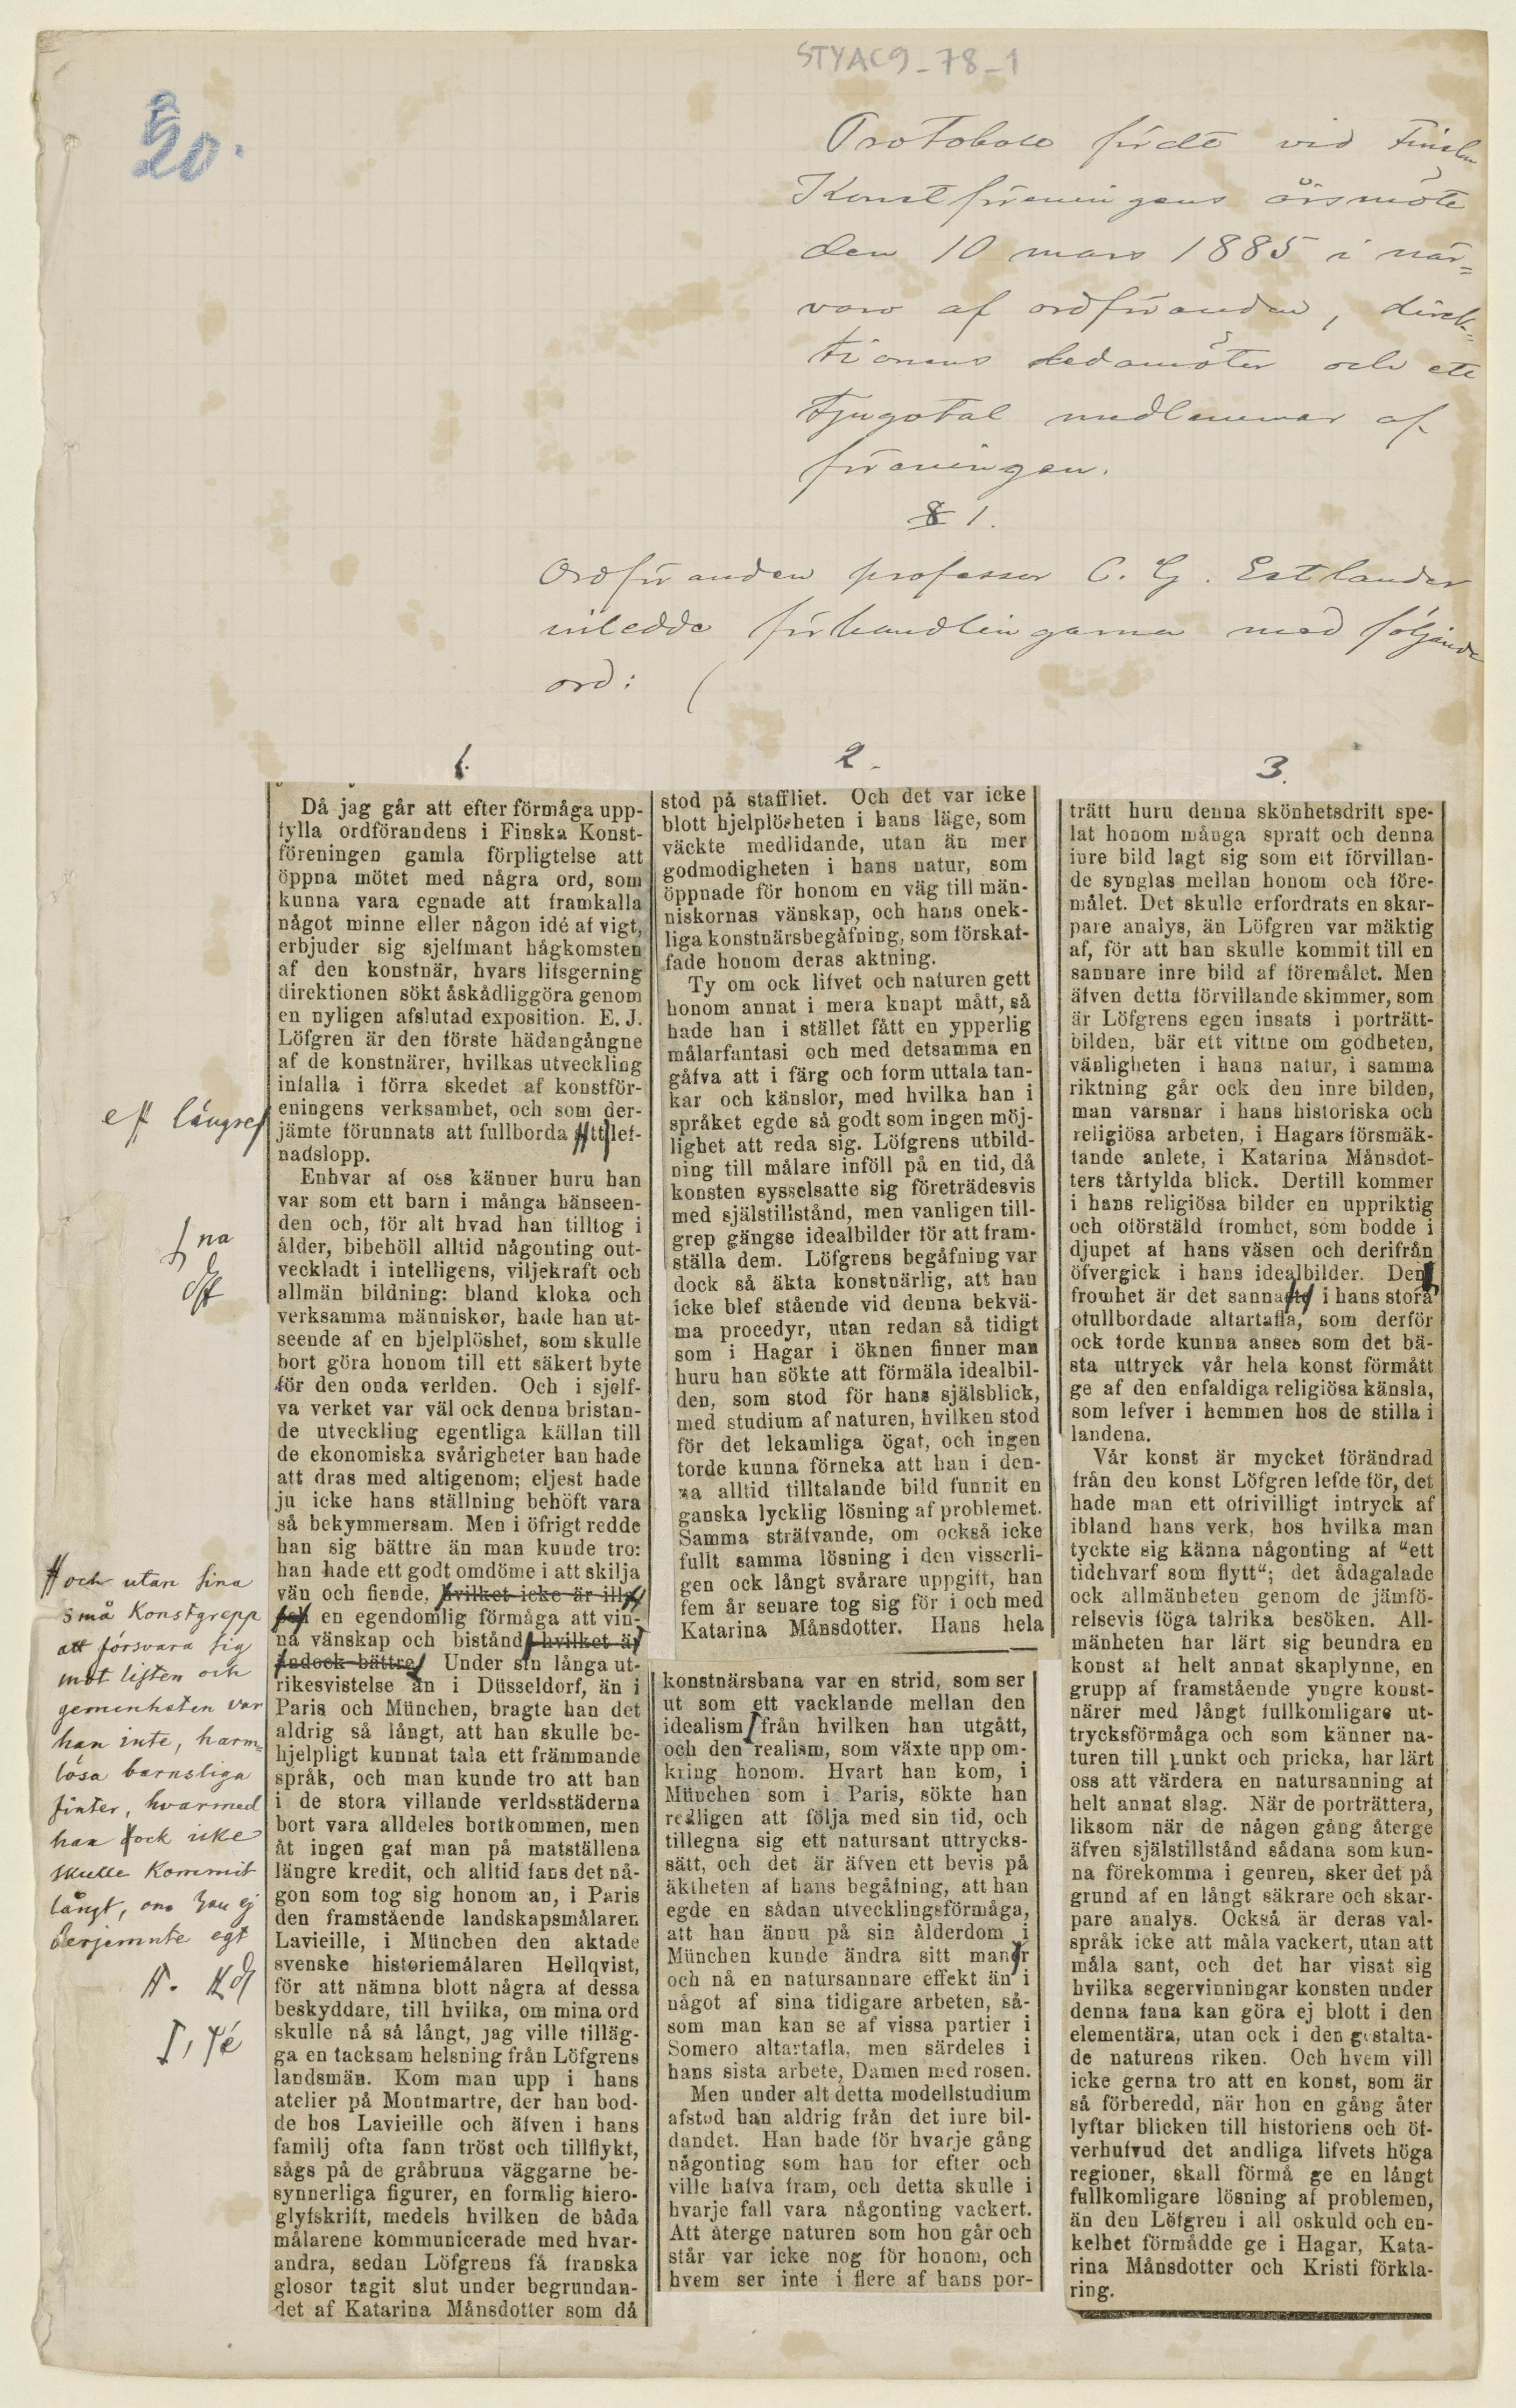 STYAC9-78-1
20.
Protokoll fördt vid Finska
Konstföreningens årsmöte
den 10 mars 1885 i när=
varo af ordföranden, direk=
tionens ledamöter och ett
tjugotal medlemmar af
föreningen.
§ 1.
Ordföranden professor C. G. Estlander
inledde förhandlingarna med följande
ord: (
1.
Då jag går att efter förmåga upp-
fylla ordförandens i Finska Konst-
föreningen gamla förpligtelse att
öppna mötet med några ord, som
kunna vara egnade att framkalla
något minne eller någon idé af vigt,
erbjuder sig sjelfmant hågkomsten
af den konstnär, hvars lifsgerning
direktionen sökt åskådliggöra genom
en nyligen afslutad exposition. E. J.
Löfgren är den förste hädangångne
af de konstnärer, hvilkas utveckling
infalla i förra skedet af konstför-
eningens verksamhet, och som der-
jämte förunnats att fullborda ett lef-
nadslopp.
Enhvar af oss känner huru han
var som ett barn i många hänseen-
den och, för alt hvad han tilltog i
ålder, bibehöll alltid någonting out-
veckladt i intelligens, viljekraft och
allmän bildning: bland kloka och
verksamma människor, hade han ut-
seende af en hjelplöshet, som skulle
bort göra honom till ett säkert byte
för den onda verlden. Och i sjelf-
va verket var väl ock denna bristan-
de utveckling egentliga källan till
de ekonomiska svårigheter han hade
att dras med altigenom; eljest hade
ju icke hans ställning behöft vara
så bekymmersam. Men i öfrigt redde
han sig bättre än man kunde tro:
han hade ett godt omdöme i att skilja
vän och fiende, hvilket icke är illa,
en egendomlig förmåga att vin-
na vänskap och bistånd, hvilket är
ändock bättre. Under sin långa ut-
rikesvistelse än i Düsseldorf, än i
Paris och München, bragte han det
aldrig så långt, att han skulle be-
hjelpligt kunnat tala ett främmande
språk, och man kunde tro att han
i de stora villande verldsstäderna
bort vara alldeles bortkommen, men
åt ingen gaf man på matställena
längre kredit, och alltid fans det nå-
gon som tog sig honom an, i Paris
den framstående landskapsmålaren
Lavieille, i München den aktade
svenske historiemålaren Hellqvist,
för att nämna blott några af dessa
beskyddare, till hvilka, om mina ord
skulle nå så långt, jag ville tilläg-
ga en tacksam helsning från Löfgrens
landsmän. Kom man upp i hans
atelier på Montmartre, der han bod-
de hos Lavieille och äfven i hans
familj ofta fann tröst och tillflykt,
sågs på de gråbruna väggarne be-
synnerliga figurer, en formlig hiero-
glyfskrift, medels hvilken de båda
målarene kommunicerade med hvar-
andra, sedan Löfgrens få franska
glosor tagit slut under begrundan-
det af Katarina Månsdotter som då
längre
na
och utan sina
små Konstgrepp
att försvara sig
mot listen och
gemenheten var
han inte, harm=
lösa barnsliga
finter, hvarmed
han dock icke
skulle kommit
långt, om han ej
derjemnte egt
2.
stod på staffliet. Och det var icke
blott hjelplösheten i hans läge, som
väckte medlidande, utan än mer
godmodigheten i hans natur, som
öppnade för honom en väg till män-
niskornas vänskap, och hans onek-
liga konstnärsbegåfning, som förskaf-
fade honom deras aktning.
Ty om ock lifvet och naturen gett
honom annat i mera knapt mått, så
hade han i stället fått en ypperlig
målarfantasi och med detsamma en
gåfva att i färg och form uttala tan-
kar och känslor, med hvilka han i
språket egde så godt som ingen möj-
lighet att reda sig. Löfgrens utbild-
ning till målare inföll på en tid, då
konsten sysselsatte sig företrädesvis
med själstillstånd, men vanligen till-
grep gängse idealbilder för att fram-
ställa dem. Löfgrens begåfning var
dock så äkta konstnärlig, att han
icke blef stående vid denna bekvä-
ma procedyr, utan redan så tidigt
som i Hagar i öknen finner man
huru han sökte att förmäla idealbil-
den, som stod för hans själsblick,
med studium af naturen, hvilken stod
för det lekamliga ögat, och ingen
torde kunna förneka att han i den-
na alltid tilltalande bild funnit en
ganska lycklig lösning af problemet.
Samma sträfvande, om också icke
fullt samma lösning i den visserli-
gen ock långt svårare uppgift, han
fem år senare tog sig för i och med
Katarina Månsdotter. Hans hela
konstnärsbana var en strid, som ser
ut som ett vacklande mellan den
idealism, från hvilken han utgått,
och den realism, som växte upp om-
kring honom. Hvart han kom, i
München som i Paris, sökte han
redligen att följa med sin tid, och
tillegna sig ett natursant uttrycks-
sätt, och det är äfven ett bevis på
äktheten af hans begåfning, att han
egde en sådan utvecklingsförmåga,
att han ännu på sin ålderdom i
München kunde ändra sitt maner
och nå en natursannare effekt än i
något af sina tidigare arbeten, så-
som man kan se af vissa partier i
Somero altartafla, men särdeles i
hans sista arbete, Damen med rosen.
Men under alt detta modellstudium
afstod han aldrig från det inre bil-
dandet. Han hade för hvarje gång
någonting som han for efter och
ville hafva fram, och detta skulle i
hvarje fall vara någonting vackert.
Att återge naturen som hon går och
står var icke nog för honom, och
hvem ser inte i flere af hans por-
3.
trätt huru denna skönhetsdrift spe-
lat honom många spratt och denna
inre bild lagt sig som ett förvillan-
de synglas mellan honom och före-
målet. Det skulle erfordrats en skar-
pare analys, än Löfgren var mäktig
af, för att han skulle kommit till en
sannare inre bild af föremålet. Men
äfven detta förvillande skimmer, som
är Löfgrens egen insats i porträtt-
bilden, bär ett vittne om godheten,
vänligheten i hans natur, i samma
riktning går ock den inre bilden,
man varsnar i hans historiska och
religiösa arbeten, i Hagars försmäk-
tande anlete, i Katarina Månsdot-
ters tårfylda blick. Dertill kommer
i hans religiösa bilder en uppriktig
och oförstäld fromhet, som bodde i
djupet af hans väsen och derifrån
öfvergick i hans idealbilder. Den
fromhet är det sannaste i hans stora,
ofullbordade altartafla, som derför
ock torde kunna anses som det bä-
sta uttryck vår hela konst förmått
ge af den enfaldiga religiösa känsla,
som lefver i hemmen hos de stilla i
landena.
Vår konst är mycket förändrad
från den konst Löfgren lefde för, det
hade man ett ofrivilligt intryck af
ibland hans verk, hos hvilka man
tyckte sig känna någonting af “ett
tidehvarf som flytt“; det ådagalade
ock allmänheten genom de jämfö-
relsevis föga talrika besöken. All-
mänheten har lärt sig beundra en
konst af helt annat skaplynne, en
grupp af framstående yngre konst-
närer med långt fullkomligare ut-
trycksförmåga och som känner na-
turen till punkt och pricka, har lärt
oss att värdera en natursanning af
helt annat slag. När de porträttera,
liksom när de någon gång återge
äfven själstillstånd sådana som kun-
na förekomma i genren, sker det på
grund af en långt säkrare och skar-
pare analys. Också är deras val-
språk icke att måla vackert, utan att
måla sant, och det har visat sig
hvilka segervinningar konsten under
denna fana kan göra ej blott i den
elementära, utan ock i den gestalta-
de naturens riken. Och hvem vill
icke gerna tro att en konst, som är
så förberedd, när hon en gång åter
lyftar blicken till historiens och öf-
verhufvud det andliga lifvets höga
regioner, skall förmå ge en långt
fullkomligare lösning af problemen,
än den Löfgren i all oskuld och en-
kelhet förmådde ge i Hagar, Kata-
rina Månsdotter och Kristi förkla-
ring.